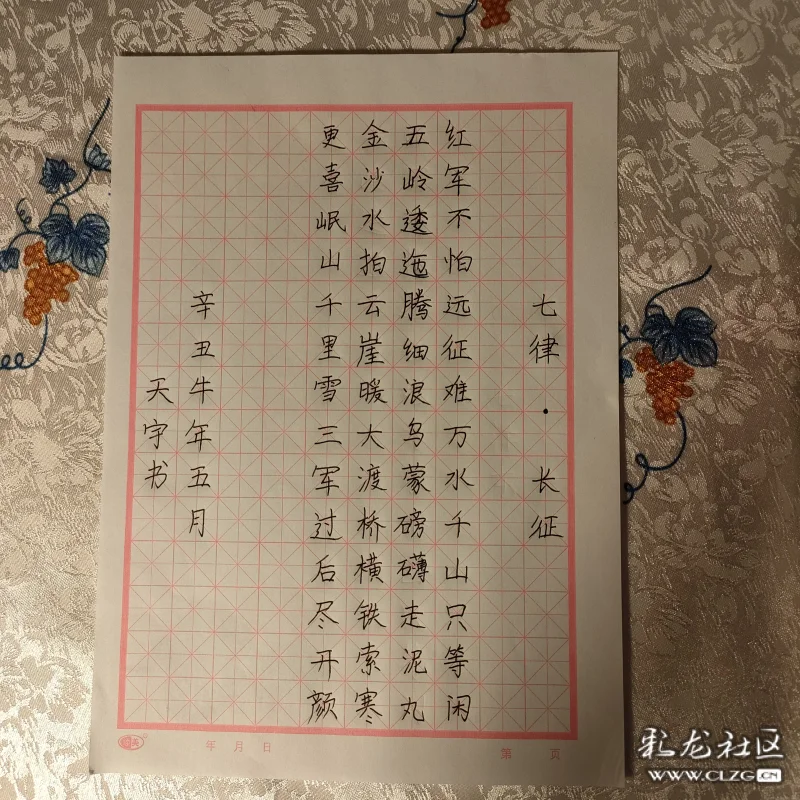 七律·长征
红军不怕远征难万水千山只等闲
五岭逶迤腾细浪乌蒙磅礴走泥丸
金沙水拍云崖暖大渡桥横铁索寒
更喜岷山千里雪三军过后尽开颜
辛丑牛年五月
天宇书
年 月 日
第 页
彩龙社区
WWW.CLZG.CN